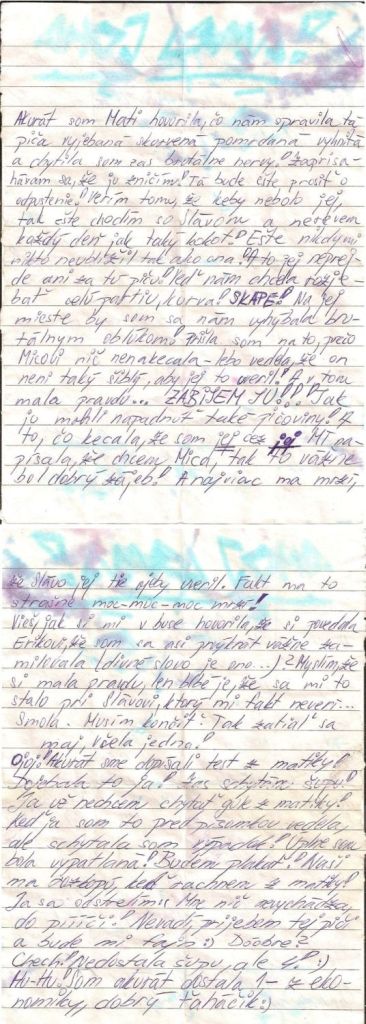 Akurát som Mati hovorila, čo nám spravila, tá
piča vyjebaná skazená pomrdaná vyhnitá
a chytila som zas brutálne nervy! Zaprisa-
hávam sa, že ju zničím! Tá bude ešte prosiť o
odpustenie! Verím tomu, že keby nebolo jej,
tak ešte chodím so Slávom a nerevem
každý deň jak taký kokot! Ešte nikdy mi
nikto neublížil tak ako ona! A to jej neprej-
de ani za tú piču! Veď nám chcela rozje-
bať celú partiu, kurva! SKAPE! Na jej
mieste by som sa nám vyhýbala bru-
tálnym oblúkom! Prišla som na to, prečo
Micovi nič nenakecala - lebo vedela, že on
není taký šiblý, aby jej to uveril! A v tom
mala pravdu... ZABIJEM JU!!! Jak
ju mohli napadnúť také pičoviny! A
to, čo kecala, že som jej cez MT na-
písala, že chcem Mica, tak to vážne
bol dobrý zájeb! A najviac ma mrzí,
že Slávo jej tie ojeby uveril. Fakt ma to
strašne moc-moc-moc mrzí!
Vieš, jak si mi v buse hovorila, že si povedala
Erikovi, že som sa asi prvýkrát vážne za-
milovala (divné slovo je ono...)? Myslím, že
si mala pravdu, len blbé je, že sa mi to
stalo pri Slávovi, ktorý mi fakt neverí...
Smola. Musím končiť. Tak zatiaľ sa
maj, včela jedna!
Ojoj! Akurát sme dopísali test z matiky!
Dojebala to ja! Zas schytám šupu!
Ja už nechcem chytať gule z matiky!
Keď ja som to pred písomkou vedela,
ale schytala som výpadok! Úplne som
bola vypatlaná! Budem plakať! Naši
ma rozkopú, keď rachnem z matiky!
Ja sa odstrelím! Mne nič nevychádza,
do piiiči! Nevadí, prijebem tej piči
a bude mi fajn :) Doobre?
Chech! Nedostala šupu, ale 4! :)
Hu-Hu! Som akurát dostala 1- z eko-
nomiky, dobrý ťaháčik :)